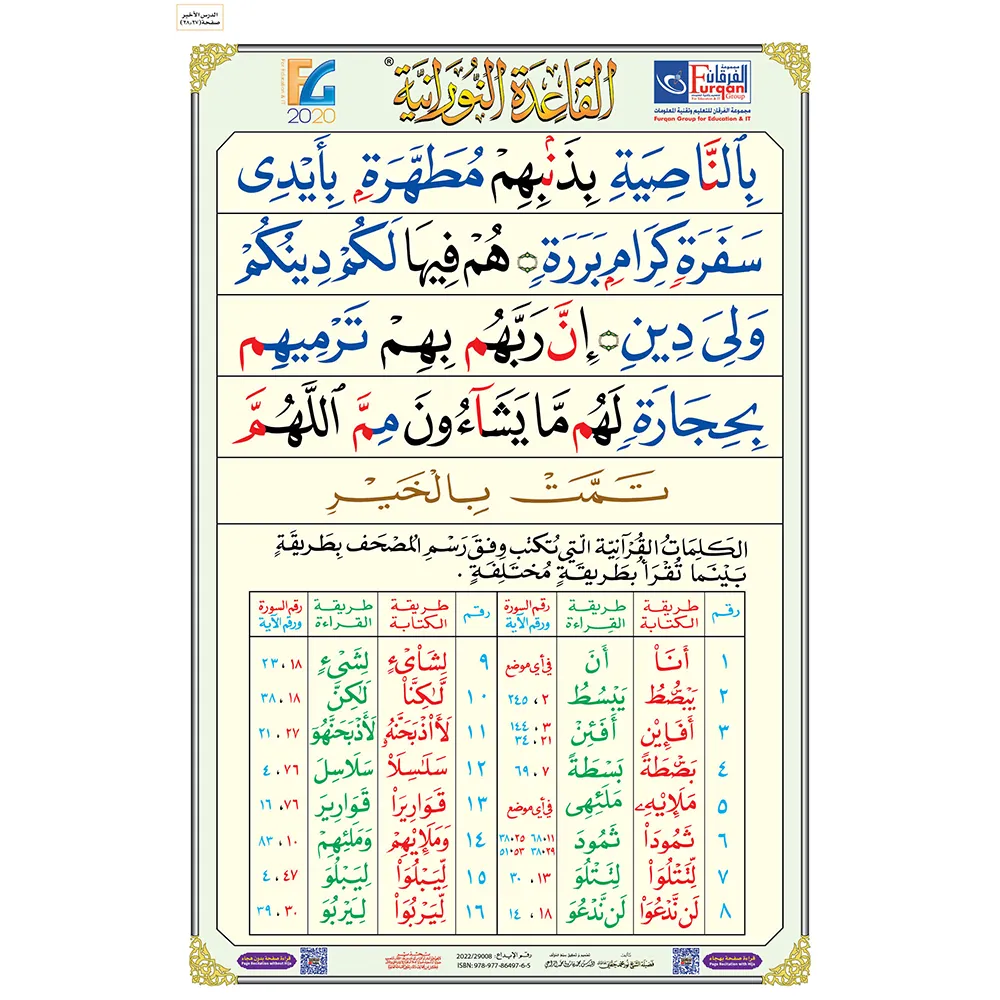 الدرس الأخير
صفحة (٢٨،٢٧)
القَاعِدَة النُّورَانِيَّة ®
FG
2020
مجموعة
الفرقان
Furqan
Group
مجموعة الفرقان للتعليم وتقنية المعلومات
Furqan Group for Education & IT
بِٱلنَّاصِيَةِ بِذَنۢبِهِمْ مُطَهَّرَةٍۭ بِأَيْدِى
سَفَرَةٍ كِرَامٍۭ بَرَرَةٍ هُمْ فِيهَا لَكُمْ دِينُكُمْ
وَلِىَ دِينِ إِنَّ رَبَّهُم بِهِمْ تَرْمِيهِم
بِحِجَارَةٍ لَهُم مَّا يَشَآءُونَ مِمَّ ٱللَّهُمَّ
تَمَّتْ بِالْخَيْرِ
الكَلِمَاتُ القُرْآنِيَّة الَّتِي تُكتَب وِفقَ رَسْمِ المُصْحَف بِطَرِيقَةٍ
بَيْنَمَا تُقْرَأُ بِطَرِيقَةٍ مُخْتَلِفَةٍ .
رقم طريقة الكتابة طريقة القراءة رقم السورة ورقم الآية رقم طريقة الكتابة طريقة القراءة رقم السورة ورقم الآية
١ أَنَا۠ أَنَ في أي موضع ٩ لِشَا۟ىْءٍ لِشَىْءٍ ١٨ ، ٢٣
٢ يَبْصُۜطُ يَبْسُطُ ٢ ، ٢٤٥ ١٠ لَّٰكِنَّا۠ لَٰكِنَّ ١٨ ، ٣٨
٣ أَفَإِي۟ن أَفَئِنْ ٣ ، ١٤٤ ٢١ ، ٣٤ ١١ لَأَا۟ذْبَحَنَّهُۥ لَأَذْبَحَنَّهُو ٢٧ ، ٢١
٤ بَصْۜطَةً بَسْطَةً ٧ ، ٦٩ ١٢ سَلَٰسِلَا۟ سَلَاسِلَ ٧٦ ، ٤
٥ مَلَإِي۟هِۦ مَلَئِهِى في أي موضع ١٣ قَوَارِيرَا۟ قَوَارِيرَ ٧٦ ، ١٦
٦ ثَمُودَا۟ ثَمُودَ ١١ ، ٦٨ ٢٥ ، ٣٨ ٢٩ ، ٣٨ ٥٣ ، ٥١ ١٤ وَمَلَإِي۟هِمْ وَمَلَئِهِمْ ١٠ ، ٨٣
٧ لِّتَتْلُوَا۟ لِتَتْلُوَ ١٣ ، ٣٠ ١٥ لِّيَبْلُوَا۟ لِيَبْلُوَ ٤٧ ، ٤
٨ لَن نَّدْعُوَا۟ لَن نَّدْعُوَ ١٨ ، ١٤ ١٦ لِّيَرْبُوَا۟ لِيَرْبُوَ ٣٠ ، ٣٩
قراءة صفحة بدون هجاء
Page Recitation without Hija
رقم الإيداع: 2022/29008
ISBN: 978-977-86497-6-5
قراءة صفحة بهجاء
Page Recitation with Hija